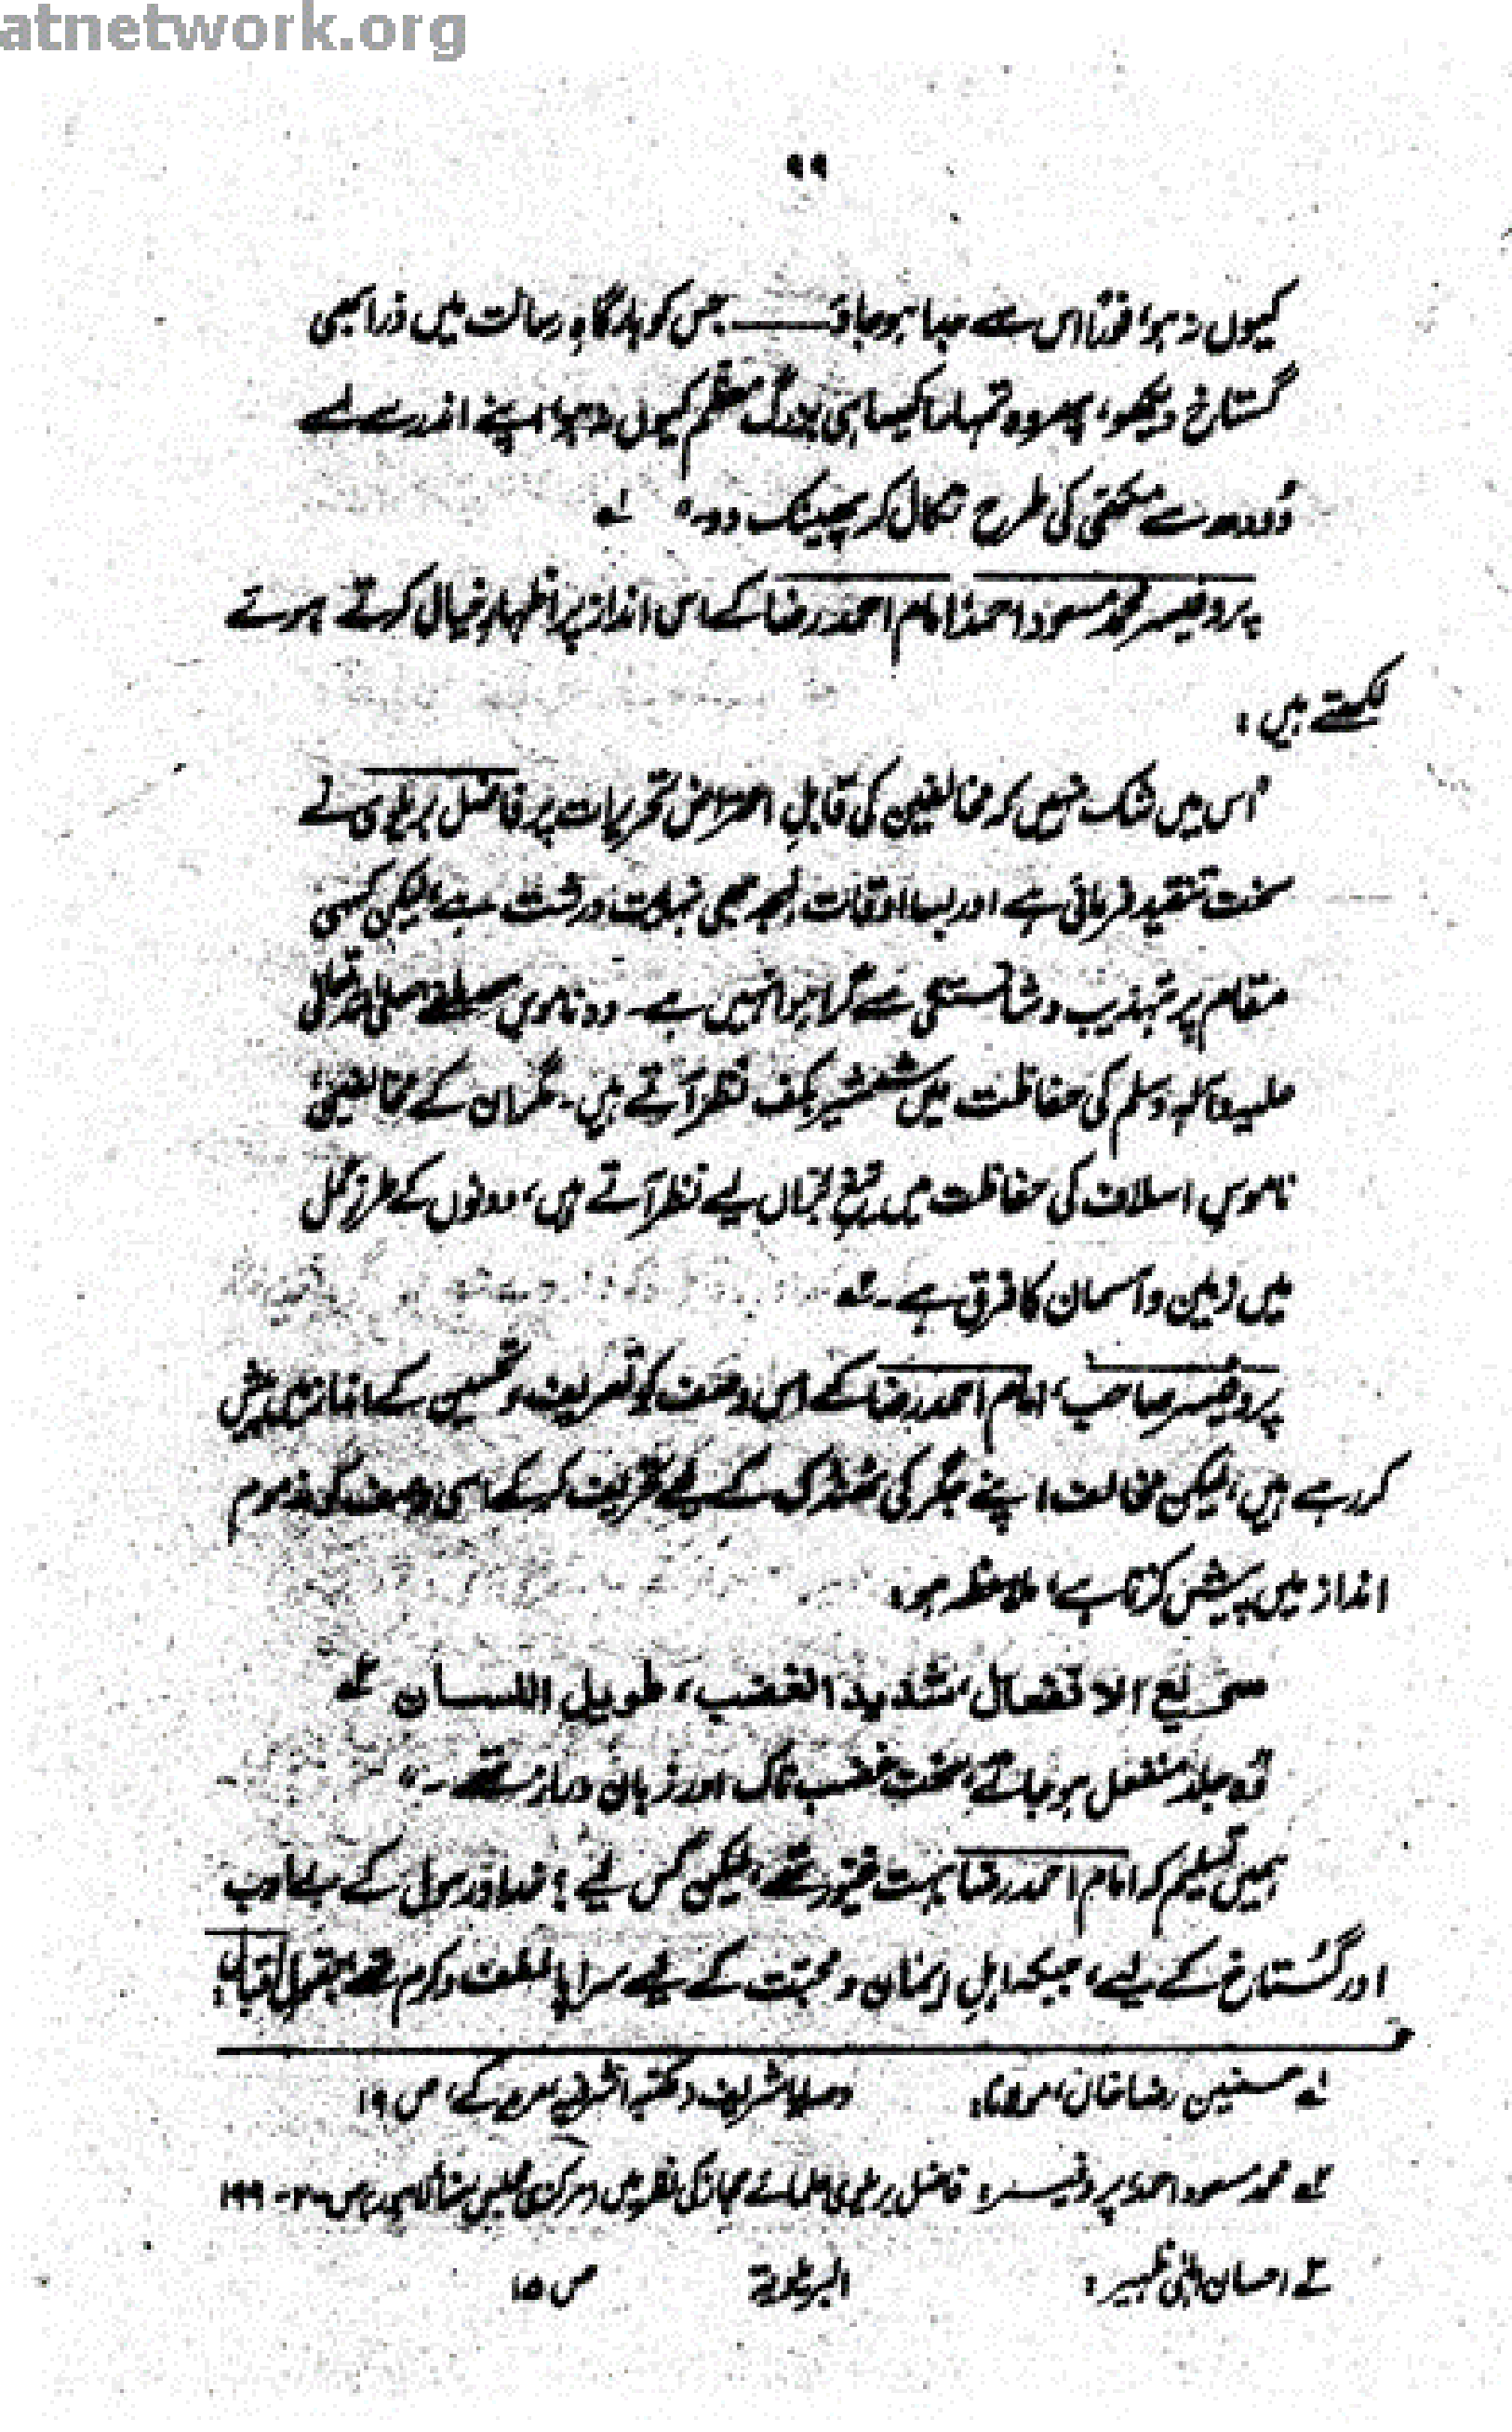 atnetwork.org
۹۹
کیوں نہ ہو، فوراً اس سے جدا ہو جاؤ ـــــ جس کو بارگاہِ رسالت میں ذرا بھی
گستاخ دیکھو، پھر وہ تمہارا کیسا ہی بزرگ معظم کیوں نہ ہو، اپنے اندر سے اسے
دودھ سے مکھی کی طرح نکال کر پھینک دو۔" لہ
پروفیسر محمد مسعود احمد، امام احمد رضا کے اس انداز پر اظہارِ خیال کرتے ہوئے
لکھتے ہیں:
"اس میں شک نہیں کہ مخالفین کی قابلِ اعتراض تحریرات پر فاضل بریلوی نے
سخت تنقید فرمائی ہے اور بسا اوقات لہجہ بھی نہایت درشت ہے، لیکن کسی
مقام پر تہذیب و شائستگی سے گرا ہوا نہیں ہے۔ وہ ناموسِ مصطفےٰ صلی اللہ تعالیٰ
علیہ وآلہ وسلم کی حفاظت میں شمشیر بکف نظر آتے ہیں۔ مگر ان کے مخالفین
ناموسِ اسلاف کی حفاظت میں تیغِ براں لیے نظر آتے ہیں، دونوں کے طرزِ عمل
میں زمین و آسمان کا فرق ہے۔ ۲ہ
پروفیسر صاحب، امام احمد رضا کے اس وصف کو تعریف و تحسین کے انداز میں پیش
کر رہے ہیں، لیکن مخالف اپنے جگر کی ٹھنڈک کے لیے تحریف کر کے اسی وصف کی مذموم
انداز میں پیش کرتا ہے، ملاحظہ ہو:
سریع الانفعال، شدید الغضب، طویل اللسان ۳ہ
"وہ جلد منفعل ہو جاتے، سخت غضب ناک اور زبان دراز تھے۔"
ہمیں تسلیم کہ امام احمد رضا بہت غیور تھے، لیکن کس لیے؟ خدا و رسول کے بے ادب
اور گستاخ کے لیے، جبکہ اہلِ ایمان و محبت کے لیے سراپا لطف و کرم تھے بقول اقبال:
لہ حسنین رضا خان، مولانا: وصایا شریف (مکتبہ اشرفیہ، مریدکے) ص ۱۹
۲ہ محمد مسعود احمد، پروفیسر: فاضل بریلوی علمائے حجاز کی نظر میں (مرکزی مجلسِ رضا، لاہور) ص ۲۰۰-۱۹۹
۳ہ احسان الٰہی ظہیر: البریلویۃ ص ۱۵